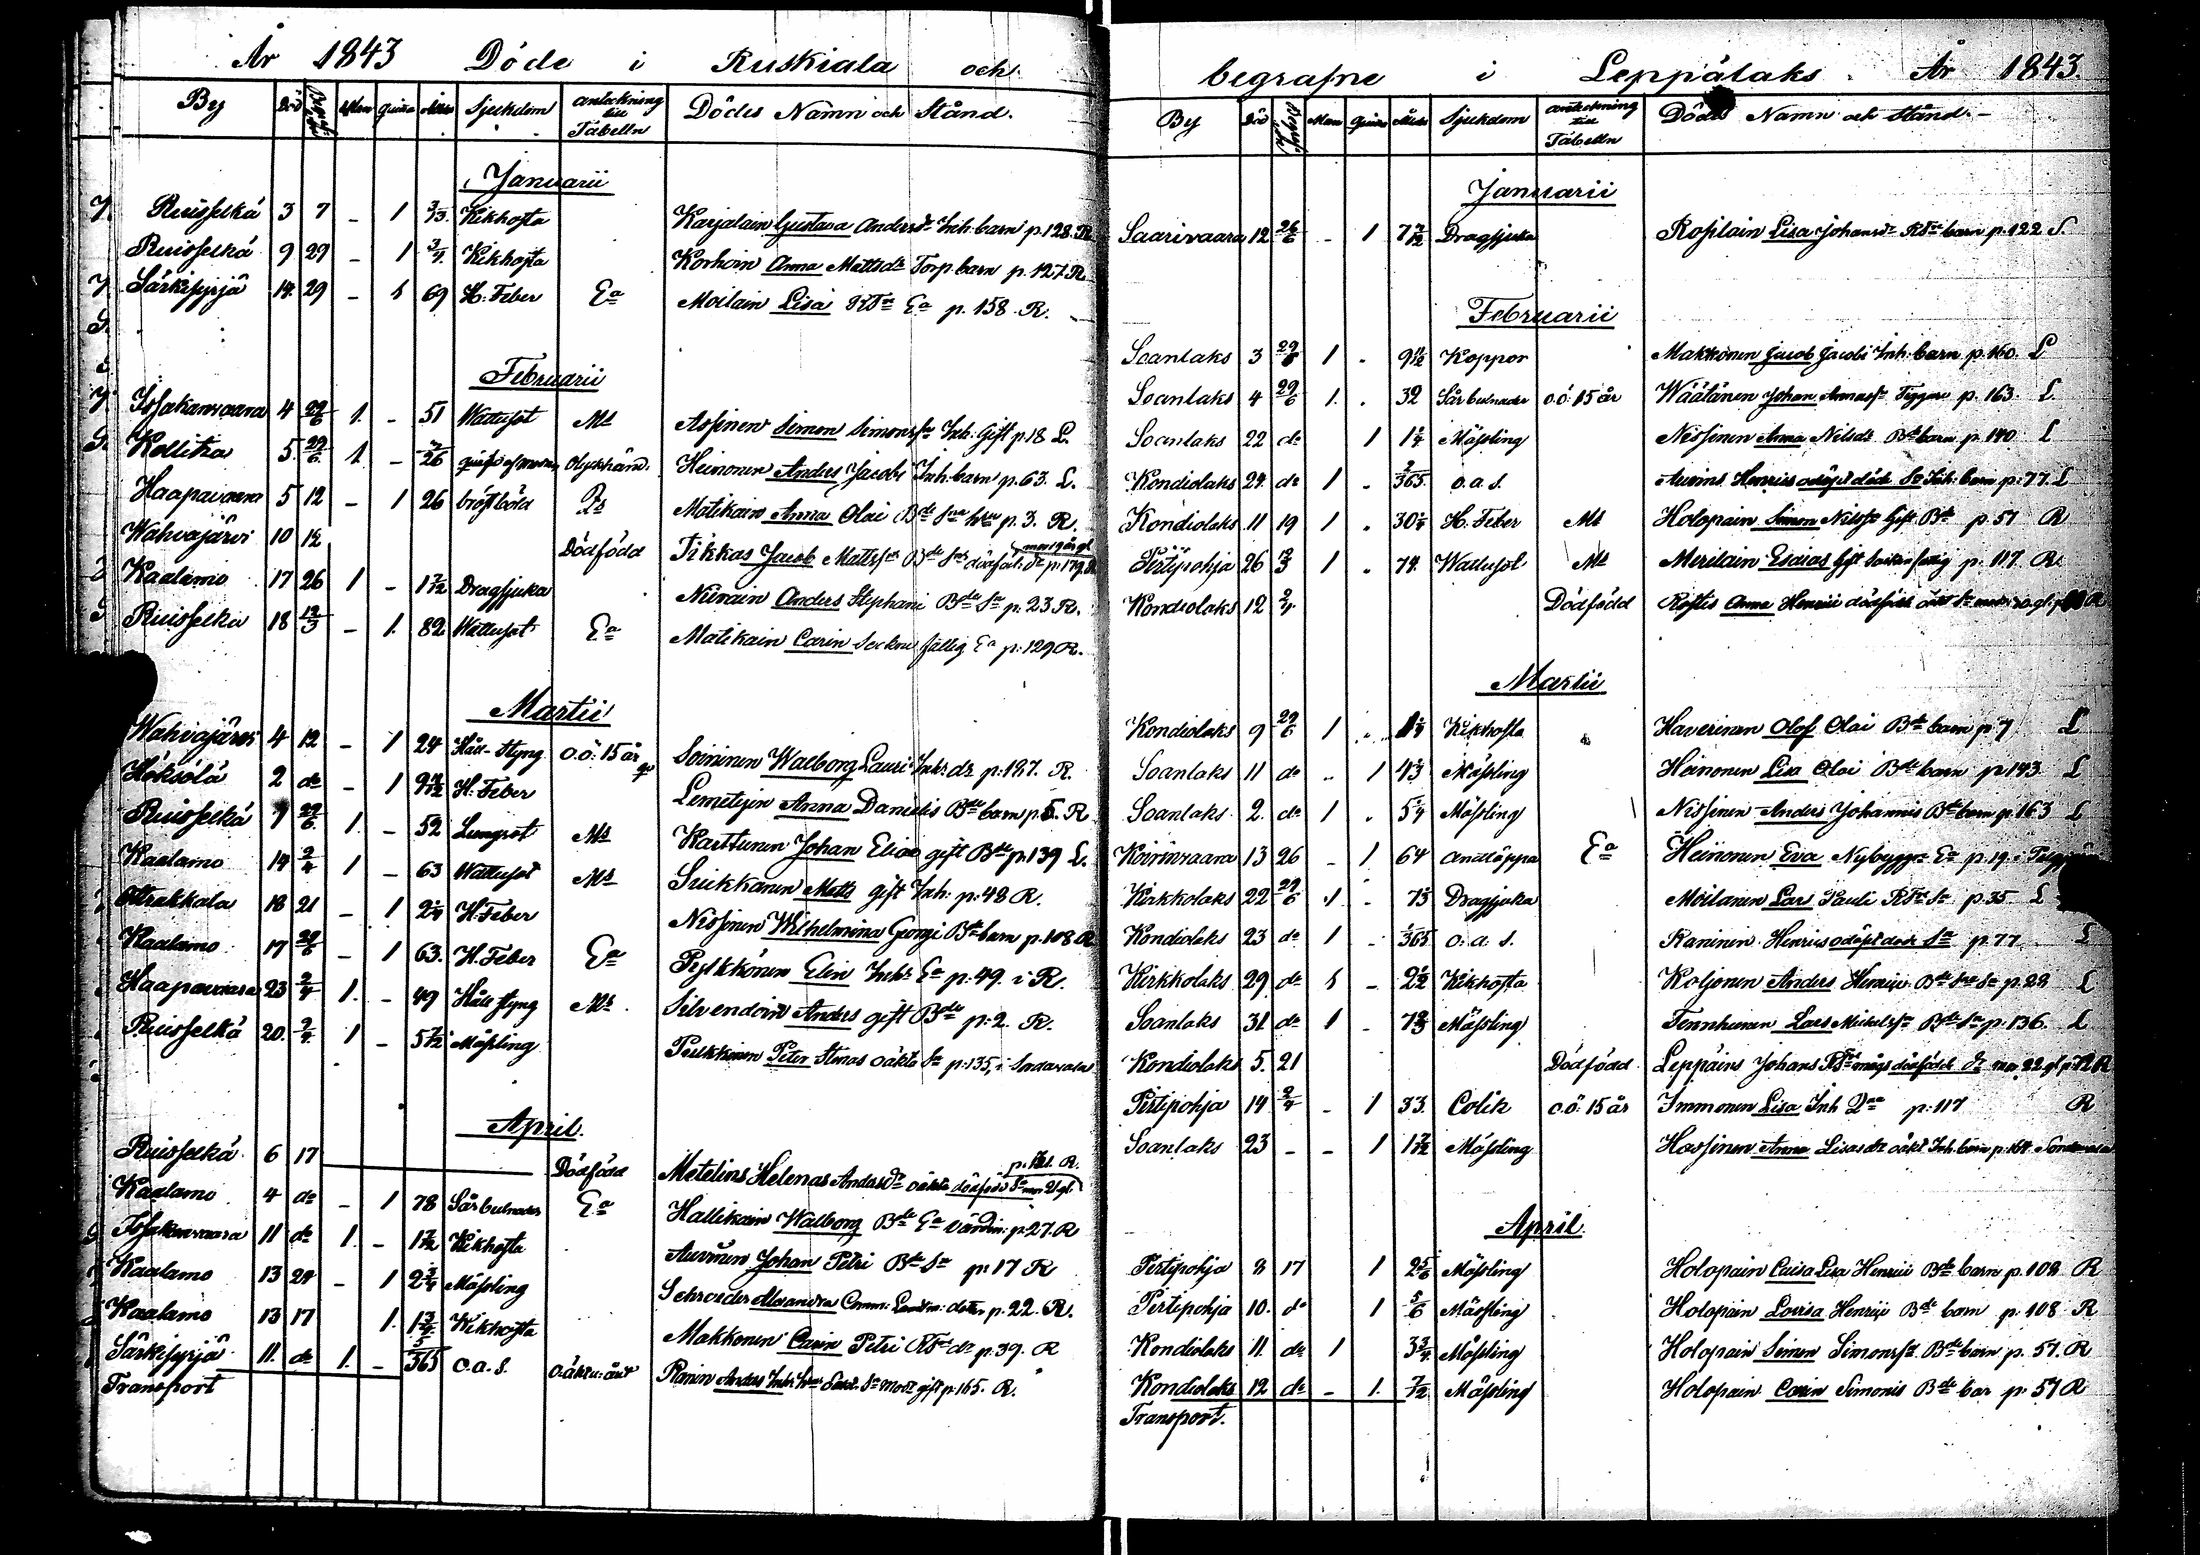 År 1843 Döde i Ruskiala och
By Död Begr. Man Quin Ålder Sjukdom anteckning till Tabelln Dödes Namn och Stånd.
Januarii
Ruisselkä 3 7 - 1 3/73 Kikhosta Karjalain Gustava Andersdr Inh. barn p. 128. R
Ruisselkä 9 29 - 1 3/4 Kikhosta Korhoin Anna Mattsdr Torp. barn p. 127 R
Särkisyrjä 14. 29 - 1 69 H. Feber Ea Moilain Lisa Ea p. 158. R.
Februarii
Issakanvaara 4 29/6 1. - 51 Wattusot Ms Assinen Simon Simonss. Inh. Gift p 18 L.
Kollitka 5. 29/6 1. - /26 Olyckshänd. Heinonen Anders Jacobi Inh. barn p. 63. L.
Haapavaara 5 12 - 1 26 bröstböld Matikain Anna Olai Bde p. 3. R.
Wahvajärvi 10 12 Dödfödd Tikkas Jacob Mattss. Bde p. 179
Kaalamo 17 26 1 - 1 7/12 Dragsjuka Niirain Anders Stephani Bde Sn p. 23 R.
Ruisselkä 18 12/3 - 1. 82 Wattusot Ea Matikain Carin Sockne fattig Ea p. 129 R.
Martii
Wahvajärvi 4 12 - 1 24 Håll-Styng o.ö: 15 år Soininen Walborg Lauri Inhs dr p: 187. R.
Höksölä 2 do - 1 9 /12 H. Feber Lemetyin Anna Danielis Bde barn p. 5. R
Ruisselkä 7 29/6. 1. - 52 Lungsot Ms Karttunen Johan Elias gift Bde p. 139 L.
Kaalamo 14 2/4 1 - 63 Wattusot Ms Suikkanen Matts gift Inh: p: 48 R.
Otrakkala 18 21 - 1 2 1/4 H. Feber Nissinen Wilhelmina Georgi Bde barn p. 108 R
Kaalamo 17 29/6 - 1 63. H. Feber Ea Pylkkönen Elin Inhs Ea p. 49. i R.
Haapavaara 23 2/4 1. - 49 Håll styng Ms. Silvendoin Anders gift Bde p: 2. R.
Ruisselkä 20. 2/4. 1 - 5 7/12 Mässling Pulkkinen Peter oäkta Sn p: 135, i Sordavala
April.
Ruisselkä 6 17 Dödfödd Metelins Helenas Andersdr oäkta dödfödd Sn mor 21 gl. p. 121. R.
Kaalamo 4 do - 1 78 Sår bulnader Ea Hallikain Walborg Bde Ea Värdin: p. 27. R
Issakanvaara 11 do 1. - 1 7/12 Kikhosta Auvinen Johan Petri Bde Sn p: 17 R
Kaalamo 13 24 - 1 2 3/4 Mässling Schroeder Alexandra Comm: Landm: dotter p. 22. R.
Kaalamo 13 17 1. 1 3/4 Kikhosta Makkonen Carin Petri dr p. 39. R
Särkisyrjä 11. do 1. - 5/365 o.a.s. Ranin Anders Inh. Sn p. 165. R.
Transport
begrafne i Leppälaks År 1843.
By Död Begr. Man Quin Ålder Sjukdom anteckning till Tabelln Dödes Namn och Stånd.-
Januarii
Saarivaara 12 26/6 - 1 7 7/12 Dragsjuka Rossilain Lisa Johansdr barn p. 122 S.
Februarii
Soanlaks 3 29/6 1 - 9 11/12 Koppor Makkonen Jacob Jacobi Inh. barn p. 160. L
Soanlaks 4 29/6 1. . 32 Sår bulnader o.ö: 15 år Wäätänen Johan Annass. Tiggare p. 163. L.
Soanlaks 22 do 1 1 1/4 Mässling Nissinen Anna Nilsdr Bde barn p. 140 L
Kondiolaks 24. do 1 . 2/365. o.a.s. Auvins Henrics odöpt döde Sn Inh. barn p: 77. L
Kondiolaks 11 19 1 . 30 1/4 H. Feber Ms Holopain Simon Nilss. Gift Bde p. 57 R
Pertipohja 26 12/3 1 . 74. Wattusot Ms Meritain Esaias Gift Sockne fattig p. 117 R.
Kondiolaks 12 2/4 Dödfödd Rostis Anna Henrici dödfödd
Martii
Kondiolaks 9 29/6 1 . Kikhosta Haverinen Olof Olai Bde barn p: 7 L
Soanlaks 11 do . 1 4 1/3 Mässling Heinonen Lisa Olai Bde barn p. 143 L
Soanlaks 2. do 1 . 5 1/4 Mässling Nissinen Anders Johannis Bde barn p. 163 L
Koirinvaara 13 26 - 1. 64 Andtäppa Ea Heinonen Eva Nybygge Ea p. 19.
Kirkkolaks 22 29/6 1 - Dragsjuka Moilanen Lars Pauli Sn p. 35 L
Kondiolaks 23 do 1 - /365 o.a.s. Kaninen Henrics odöpt död Sn p. 77 L
Kirkkolaks 29 do 1 - Kikhosta Koljonen Anders Henrici Bde Sn p. 28 L
Soanlaks 31 do 1 - 7 2/3 Mässling Tennhunen Lars Mickelss. Bde Sn p: 136. L
Kondiolaks 5. 21 Dödfödd Leppäins Johans mågs dödfödde dr mor 22 gl. p. 12 R
Pertipohja 14 2/4 - 1 33. Colik o.ö: 15 år Immonen Lisa Inh p: 117 R
Soanlaks 23 - - 1 1 7/12 Mässling Hassinen Anna Lisasdr oäkt Inh. barn p. 164 Sordavala
April
Pertipohja 8 17 1 2 5/6 Mässling Holopain Caisa Lisa Henrici Bde barn p. 108 R
Pertipohja 10. do 1 5/6 Mässling Holopain Lovisa Henrici Bde barn p. 108 R
Kondiolaks 11. do 1 3 3/4. Mässling Holopain Simon Simonss. Bde barn p. 57. R
Kondiolaks 12 do - 1. 7/12 Mässling Holopain Carin Simonis Bde bar p. 57 R
Transport.